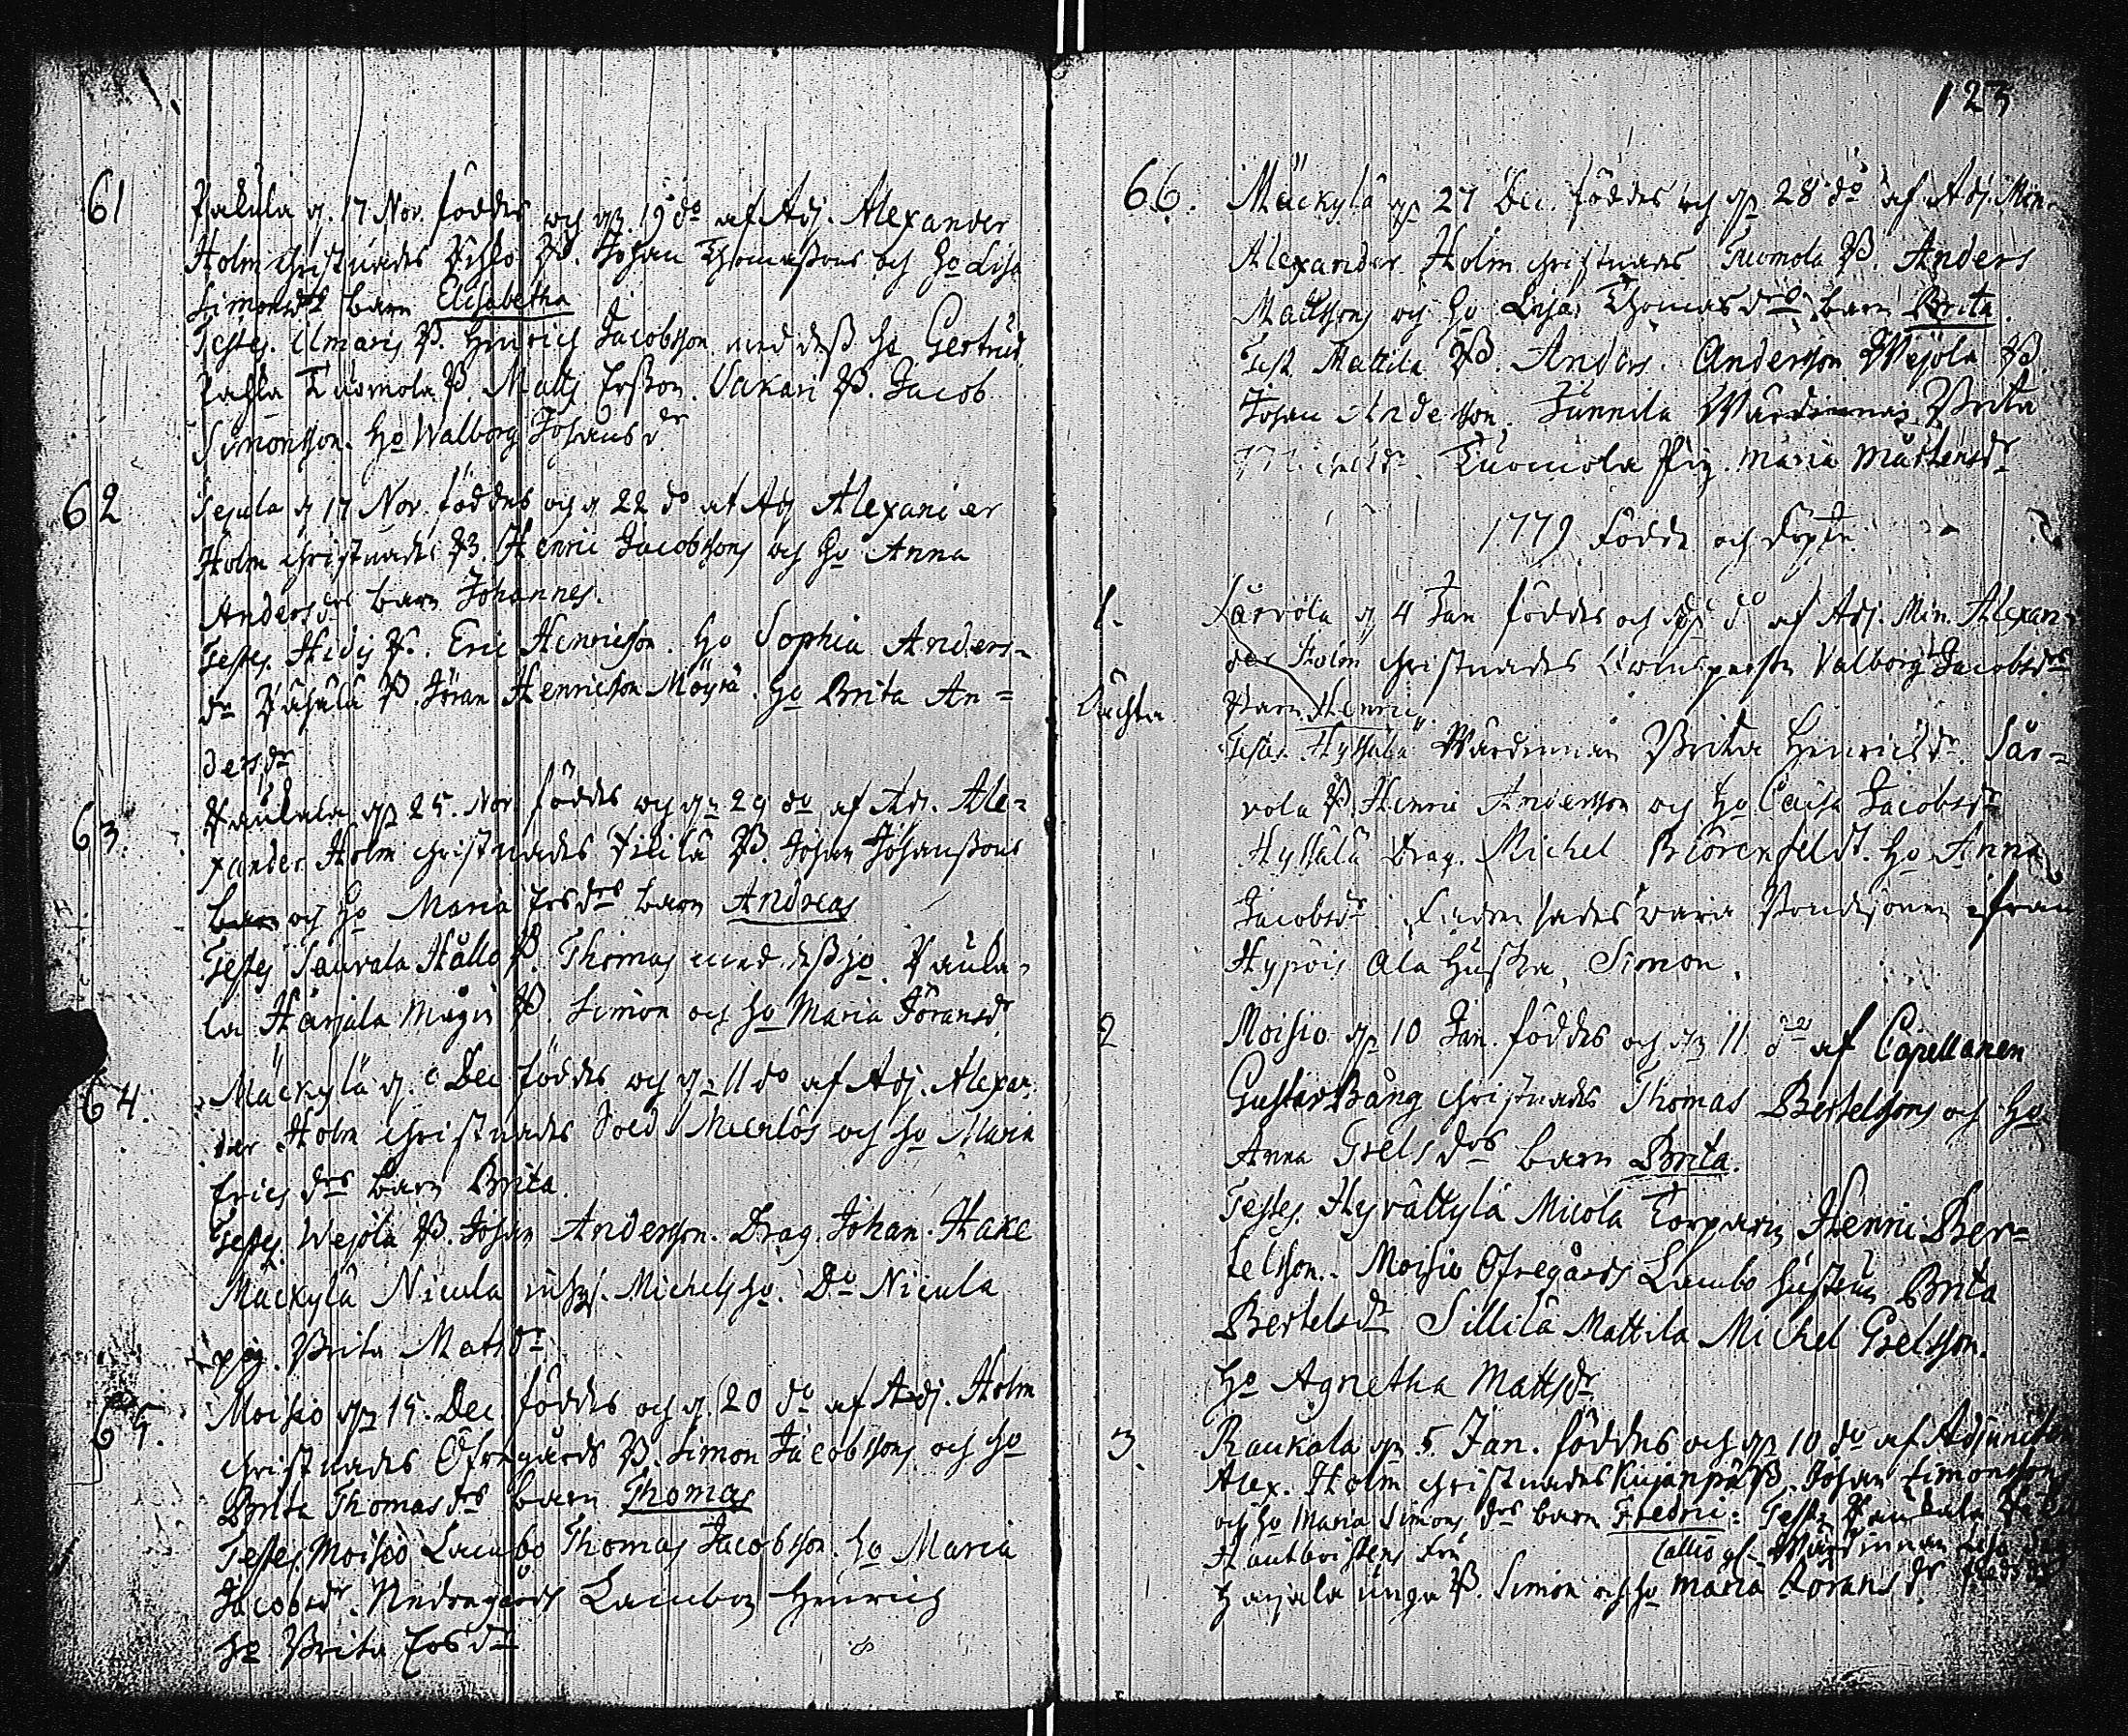 61 Pakula d. 17 Nov. föddes och d. 19 do af Adj. Alexander
Holm christnades B. Johan Thomassons och Ho Lisa
Simonsdrs barn Elisabetha
Testes. Ilmaris B. Henrich Jacobsson med dess Ho Gertrud
Tuomola B. Matts Ersson. Vakari B. Jacob
Simonsson. Ho Walborg Johansdr
62 d 17 Nov. föddes och d 22 do af Adj Alexander
Holm christnades B. Henric Jacobssons och Ho Anna
Andersdrs barn Johannes.
Testes. Hidis B. Eric Henricsson. Ho Sophia Anders-
dr B. Jöran Henricsson Möyrä. Ho Brita An=
dersdr
63. Paukula d. 25. Nov föddes och d. 29 do af Adj. Ale=
xander Holm christnades B. Johan Johanssons
barn och Ho Maria Ersdrs barn Andreas
Testes Saurala Hållo B. Thomas med dess Ho. Pauku-
la Harjula B. Simon och Ho Maria Göransdr
64. Mäckylä d. Dec föddes och d. 11 do af Adj. Alexan-
der Holm christnades Sold och Ho Maria
Erics drs barn Brita.
Testes. Wejola B. Johan Andersson. Drag. Johan. Hake
Mäckylä Nicula inhys. Michels Ho. Do Nicula
pig. Brita Matsdr
65. Moisio d. 15. Dec. föddes och d. 20 do af Adj. Holm
christnades Öfregårds B. Simon Jacobssons och Ho
Brita Thomasdrs barn Thomas
Testes. Moisio Lambo Thomas Jacobsson. Ho Maria
Jacobsdr. Nedregårds Henrich
Ho Brita Ersdr
123
66. Mäckylä d. 27 Dec. föddes och d. 28 do af Adj. Min.
Alexander Holm christnades Tuomola B. Anders
Mattssons och Ho Lisa Thomasdrs barn Brita.
Test Mattila B. Anders Andersson Wejola B.
Johan Andersson. Junnila Wärdinnan Brita
Michelsdr. Tuomola Pig. Maria Mårtensdr
1779 Födde och Döpte
1. Särvola d 4 Jan föddes och do af Adj. Min. Alexan-
der Holm christnades Valborg Jacobsdrs
Oächta Barn Henric
Testes. Hyssälä Wärdinnan Brita Henricsdr. Sär=
vola B. Henric Andersson och Ho Caisa Jacobsdr
Hyssälä Drag. Michel Ho Anna
Jacobsdr. Fadren sades wara Bondesonen ifrån
Hypöis Ala Huska, Simon.
2 Moisio d. 10 Jan. föddes och d. 11. do af Capellanen
Gustav Bång christnades Thomas Bertelssons och Ho
Anna Grels drs barn Brita.
Testes. Hyvättylä Micola Torparen Henric Ber=
telsson. Moisio Öfregårds Lambo hustrun Brita
Bertelsdr Sillilä Mattila Michel Grelsson.
Ho Agnetha Mattsdr
3. Raukala d. 5 Jan. föddes och d. 10 do af Adjuncten
Alex. Holm christnades Kujanpä B. Johan Simonsson
och Ho Maria Simons drs barn Fredric: Testes Paukula
Hautboistens Fru Wärdinnan Lisa
Harjala unga B. Simon och Ho Maria Görans dr